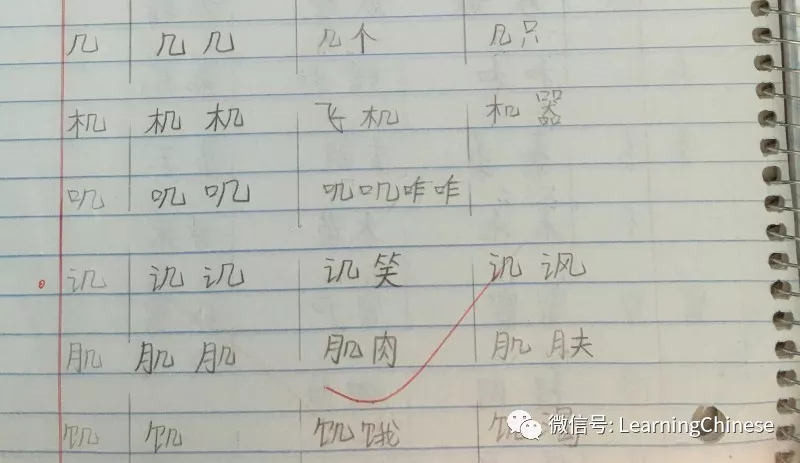 几 几 几 几个 几只
机 机 机 飞机 机器
叽 叽 叽 叽叽咋咋
讥 讥 讥 讥笑 讥讽
肌 肌 肌 肌肉 肌肤
饥 饥 饥饿 饥
微信号: LearningChinese